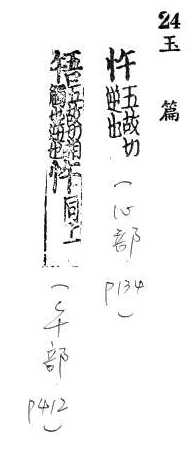 24 玉篇
忤 五故切 逆也 (心部 p134)
啎 五故切相觸也逆也 忤 同上 (午部 p412)